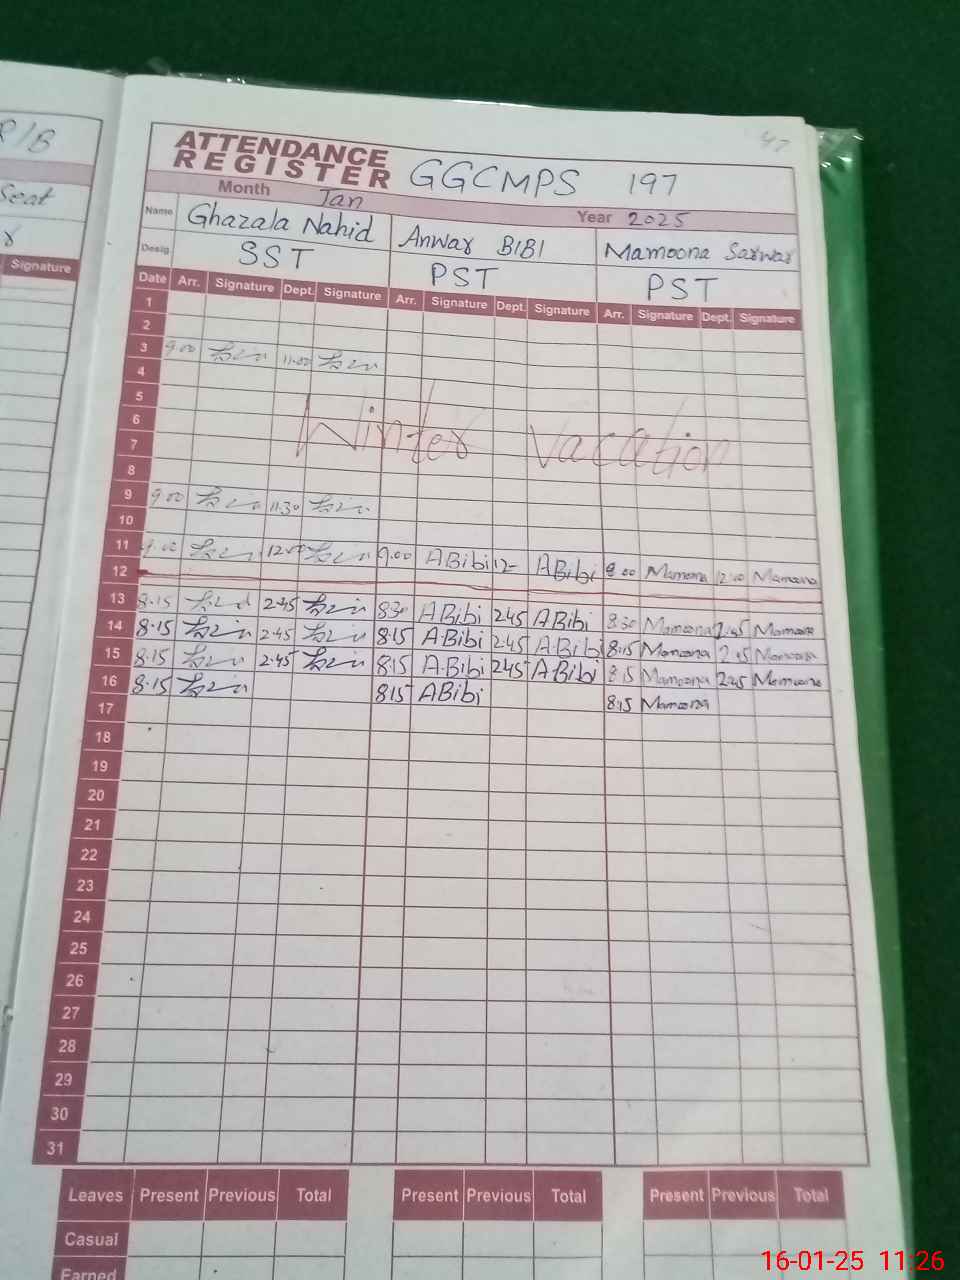 R/B
Seat
Signature
47
ATTENDANCE
REGISTER GGCMPS 197
Month Jan Year 2025
Name Ghazala Nahid Anwar BIBI Mamoona Sarwar
Desig. SST PST PST
Date Arr. Signature Dept. Signature Arr. Signature Dept. Signature Arr. Signature Dept. Signature
1
2
3 9.00 11.00
4
5
6 Winter Vacation
7
8
9 9.00 11.30
10
11 9.00 12.00 9.00 ABibi 12- ABibi 9.00 Mamoona 12.00 Mamoona
12
13 8.15 2.45 830 ABibi 245 ABibi 8.30 Mamoona 2.45 Mamoona
14 8.15 2.45 8.15 ABibi 2.45 ABibi 8.15 Mamoona 2.45 Mamoona
15 8.15 2.45 8.15 A.Bibi 245 A.Bibi 8.15 Mamoona 2.45 Mamoona
16 8.15 815 ABibi 8.15 Mamoona
17
18
19
20
21
22
23
24
25
26
27
28
29
30
31
Leaves Present Previous Total Present Previous Total Present Previous Total
Casual
Earned
16-01-25 11:26